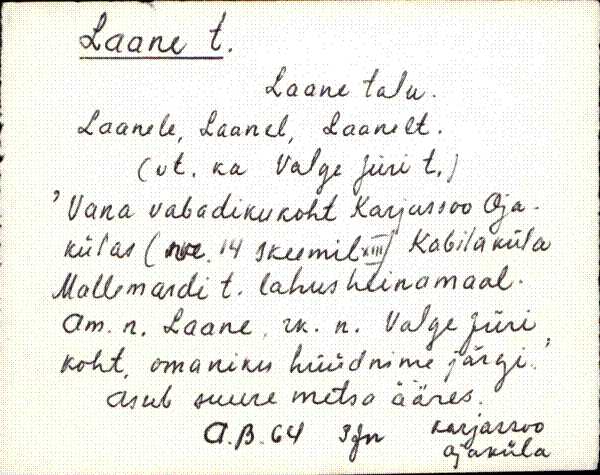 Laane t.
Laane talu.
Laanele, Laanel, Laanelt.
(vt. ka Valge Jüri t.)
'Vana vabadikukoht Karjassoo Oja-
külas (nr. 14 skeemil XIII) Kabilaküla
Mallemardi t. lahusheinamaal.
Am. n. Laane, rk. n. Valge Jüri
koht, omaniku hüüdnime järgi.'
Asub suure metsa ääres.
A.B. 64 Karjassoo
Ojaküla